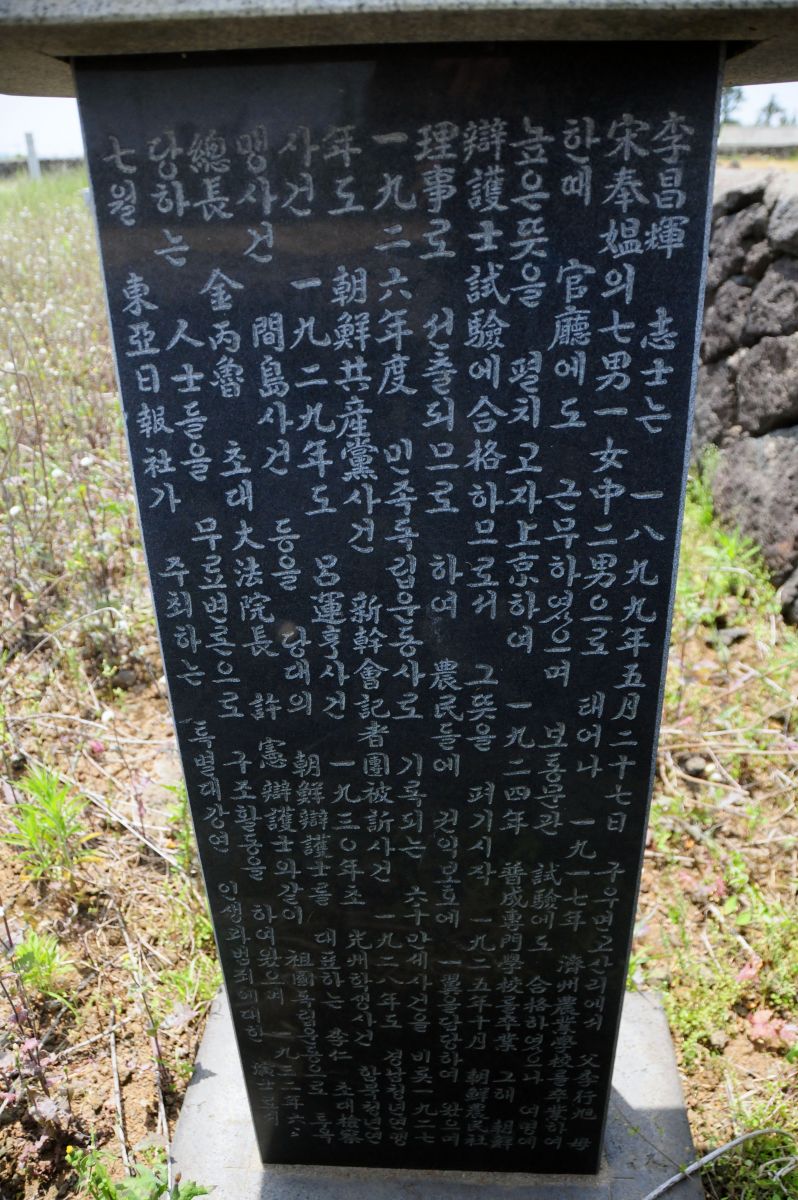 李昌輝 志士는 一八九九年五月二十七日 구우면고산리에서 父李行旭 母
宋奉媪의七男一女中二男으로 태어나 一九一七年 濟州農業學校를卒業하여
한때 官廳에도 근무하였으며 보통문관 試驗에도 合格하였으나 여명에
높은뜻을 펼치고자上京하여 一九二四年 普成專門學校를卒業 그해 朝鮮
辯護士試驗에合格하므로서 그뜻을 펴기시작 一九二五年十月 朝鮮農民社
理事로 선출되므로 하여 農民들에 권익보호에 一翼을담당하여 왔으며
一九二六年度 민족독립운동사로 기록되는 六十만세사건을 비롯一九二七
年도 朝鮮共産黨사건 新幹會記者團被訴사건 一九二八年도 경남청년연맹
사건 一九二九年도 呂運亨사건 一九三○年초 光州학생사건 함북청년연
맹사건 間島사건 등을 당대의 朝鮮辯護士를 대표하는 李仁 초대檢察
總長 金丙魯 초대大法院長 許憲辯護士와같이 祖國독립운동으로 투옥
당하는 人士들을 무료변론으로 구조활동을 하여왔으며 一九三二年六
七월 東亞日報社가 주최하는 특별대강연 인생과범죄에대한 演士로서